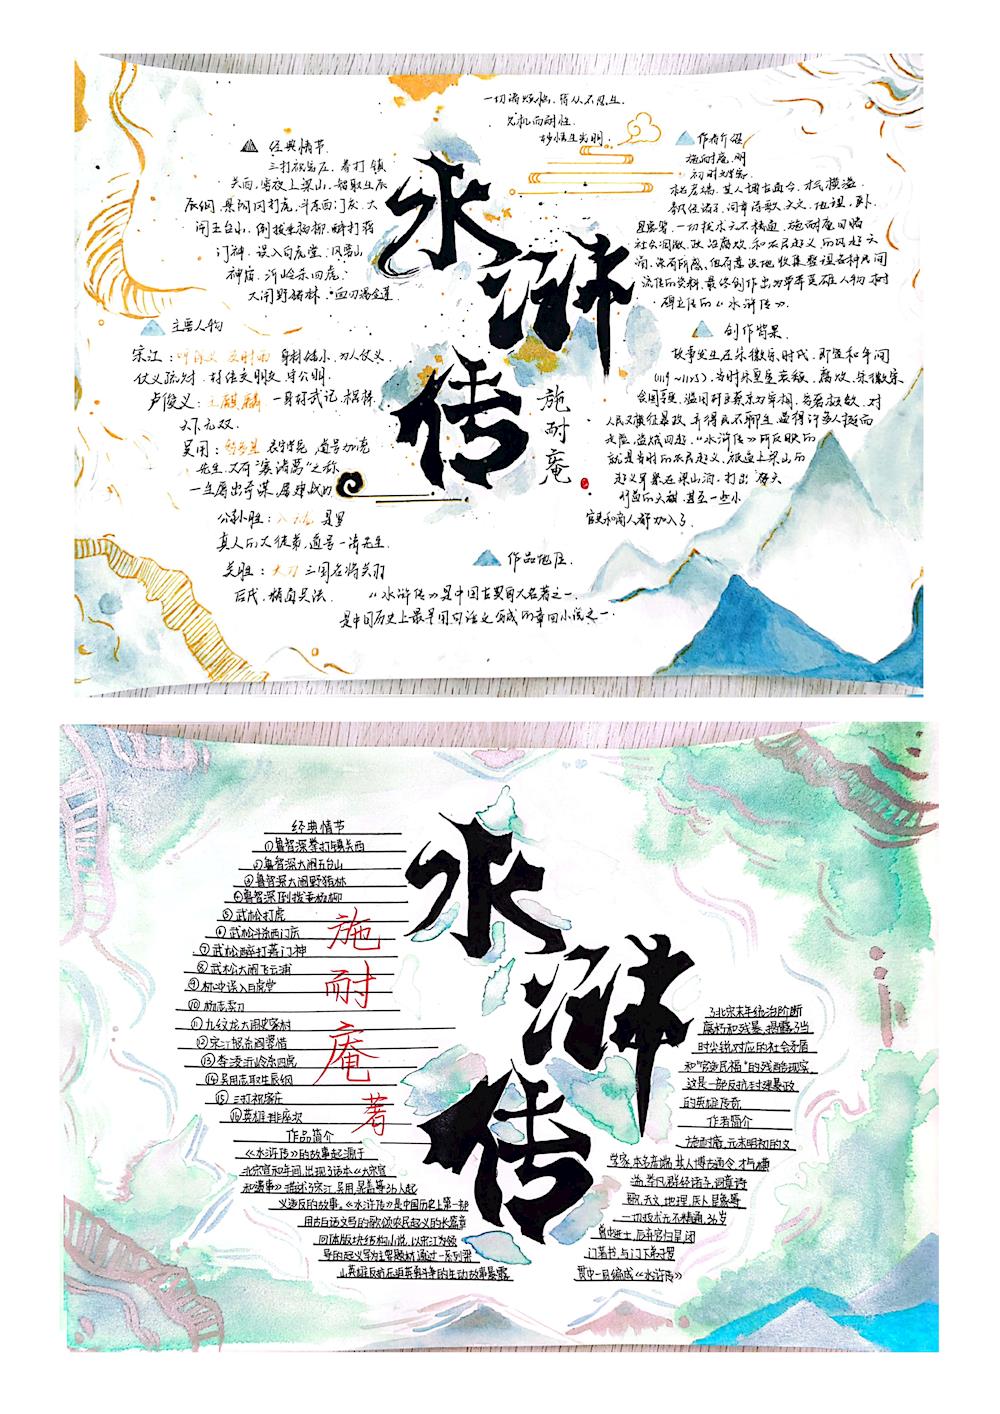 一切诸烦恼,皆从不忍生.
见机而耐性.
妙悟生光明.
经典情节
三打祝家庄、拳打镇
关西,聚权上梁山,智取生辰
辰纲,景阳冈打虎,斗杀西门庆,大
闹五台山,倒拔垂杨柳,醉打蒋
门神,误入白虎堂,风雪山
神庙,沂岭杀四虎,
大闹野猪林,血刃潘金莲.
主要人物
宋江:呼保义 及时雨 身材矮小,为人仗义,
仗义疏财,
卢俊义:玉麒麟 一身好武记,棍棒
天下无双.
吴用:智多星 道号加亮
先生,又有“赛诸葛”之称
一生屡出奇谋,屡建战功
公孙胜:入云龙 是罗
真人的大徒弟,道号一清先生.
关胜:大刀 三国名将关羽
后代,精通兵法.
水
浒
传
施
耐
庵
作者介绍
施耐庵,明
初
杰出,其人博古通今,才气横溢.
群经诸子,词章诗歌,天文,地理,医卜
星象等,一切技术无不精通,施耐庵目睹
社会凋敝,政治腐败,和农民起义的风起云
涌,深有所感,但有意识地收集整理各种民间
流传的资料,最终创作出
《水浒传》.
创作背景
故事发生在宋徽宗时代,即宣和年间
(1119~1125),当时宋皇室衰弱、腐败,宋徽宗
人民又横征暴敛,弄得民不聊生,逼得许多人挺而
走险,盗贼四起.“水浒传”所反映的
就是当时的农民起义,被逼上梁山的
起义军聚在梁山泊,打出“替天
行道”的大旗,甚至一些小
官吏和商人都加入了.
作品地位.
《水浒传》是中国古典四大名著之一.
是中国历史上最早用白话文写成的章回小说之一.
经典情节
①鲁智深拳打镇关西
②鲁智深大闹五台山
③鲁智深大闹野猪林
④鲁智深倒拔垂杨柳
⑤武松打虎
⑥武松斗杀西门庆
⑦武松醉打蒋门神
⑧武松大闹飞云浦
⑨林冲误入白虎堂
⑩杨志卖刀
⑪九纹龙大闹史家村
⑫宋江怒杀阎婆惜
⑬李逵沂岭杀四虎
⑭吴用志取生辰纲
⑮三打祝家庄
⑯英雄排座次
施
耐
庵
著
水
浒
传
作品简介
《水浒传》的故事起源于
北宋宣和年间,出现了话本《大宋宣
和遗事》描述了宋江、吴用、晁盖等36人起
义造反的故事。《水浒传》是中国历史上第一部
用古白话文写的歌颂农民起义的长篇章
回体版块结构小说,以宋江为领
导的起义军为主要题材,通过一系列梁
山英雄反抗压迫英勇斗争的生动故事暴露
了北宋末年统治阶级
腐朽和残暴,揭露了当
时尖锐对应的社会矛盾
和“官逼民福”的残酷现实,
这是一部反抗封建暴政
的英雄传奇
作者简介
施耐庵,元末明初的文
学家,本名彦端,其人博古通今,才气横
溢,举凡群经诸子,词章诗
歌,天文,地理,医卜星象等
一切技术无不精通,36岁
曾中进士,后弃官归里,闭
门著书,与门下弟子罗
贯中一同编成《水浒传》